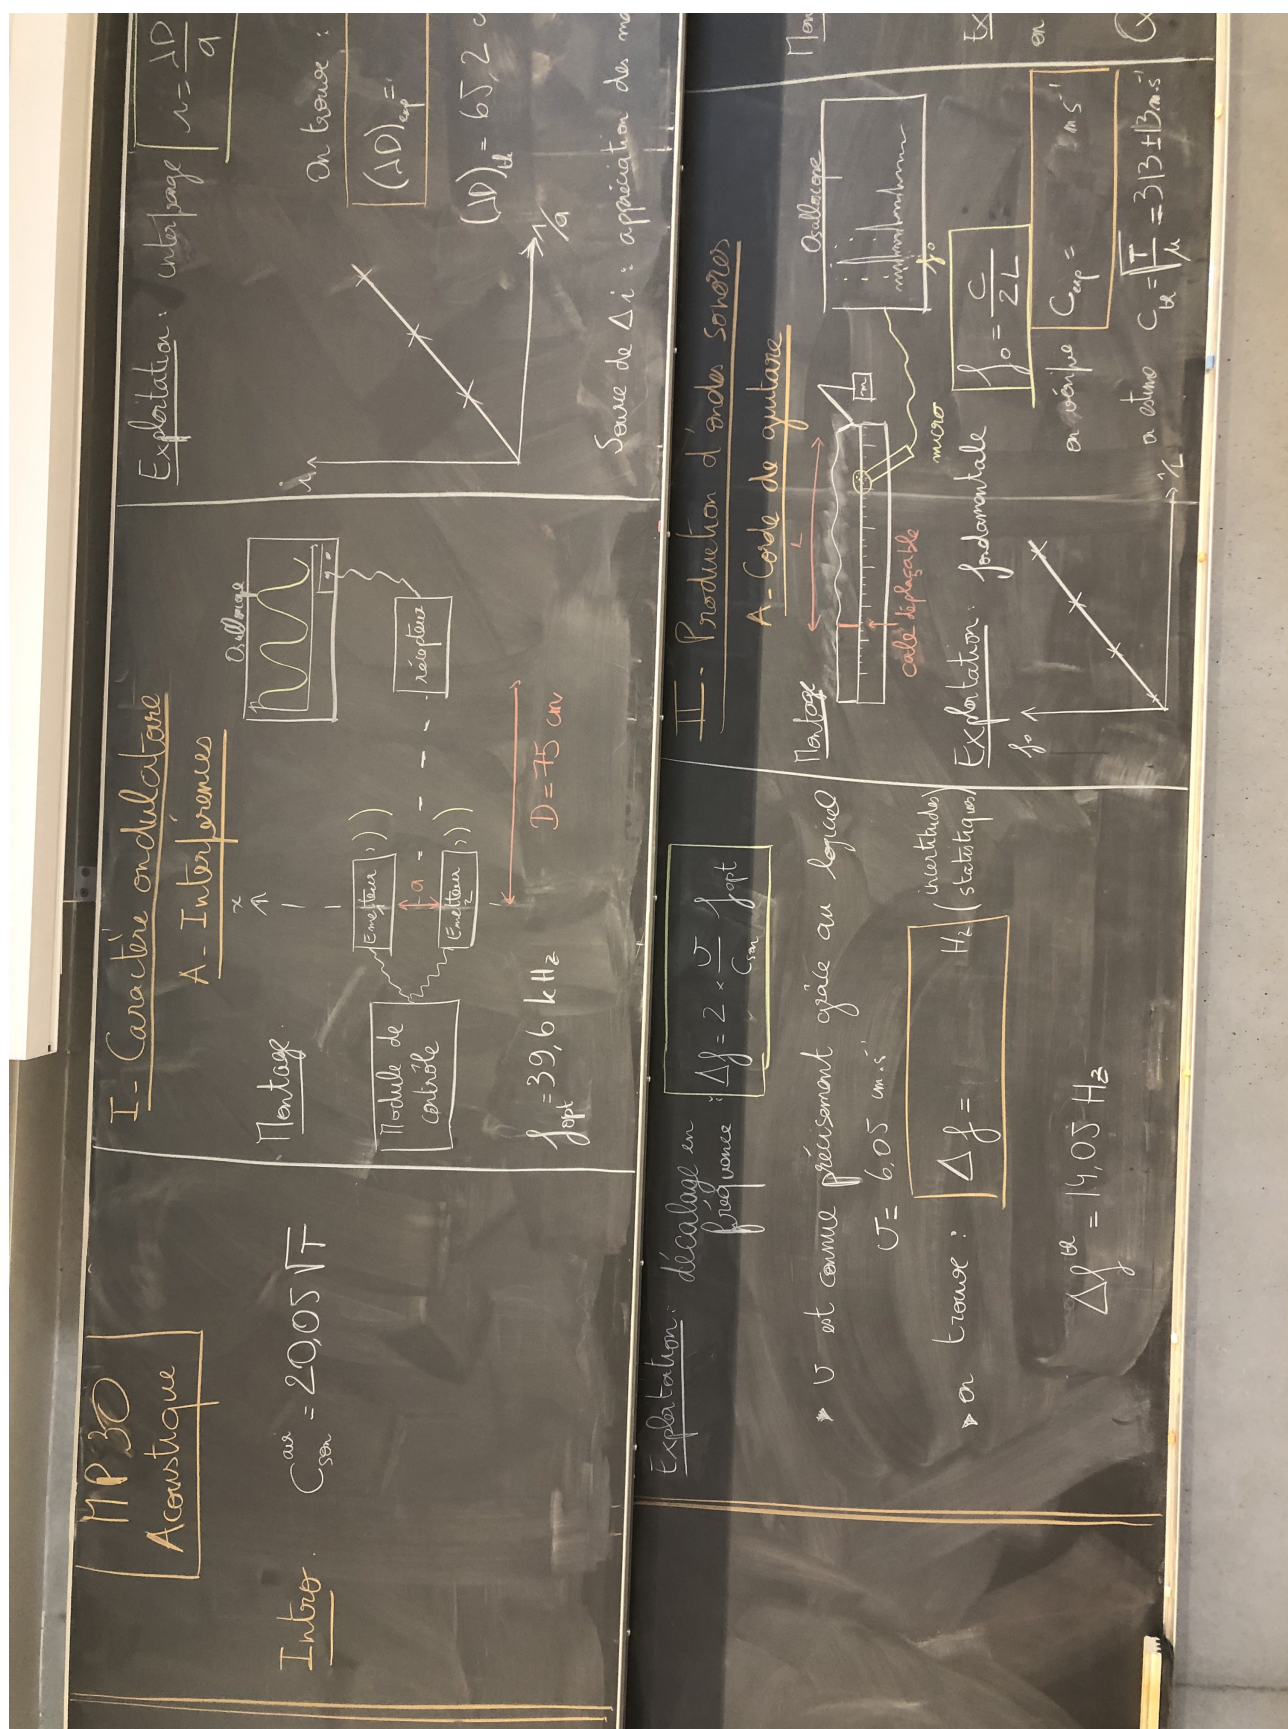 MP30
Acoustique
Intro.
C_son^air = 20,05 √T
I - Caractère ondulatoire
A - Interférences
Montage.
x
Module de
contrôle
Emetteur
1
a
Emetteur
2
récepteur
Oscilloscope
D = 75 cm
f_opt = 39,6 kHz
Exploitation: interfrange i = λD/a
i
1/a
On trouve :
(λD)_exp =
(λD)_th = 65,2 c
Source de Δi : appréciation des
Exploitation: décalage en
fréquence : Δf = 2 × v/c_son f_opt
v est connue précisément grâce au logiciel
v = 6,05 cm.s⁻¹
on trouve : Δf = Hz (incertitudes
statistiques)
Δf^th = 14,05 Hz
II - Production d'ondes sonores
A - Corde de guitare
Montage
L
m
micro
cale déplaçable
Oscilloscope
f₀
Exploitation: fondamentale f₀ = c/2L
f₀
1/L
on vérifie C_exp = m s⁻¹
on estime C_th = √(T/μ) = 313 ± 13 m.s⁻¹
Mon
Ex
on